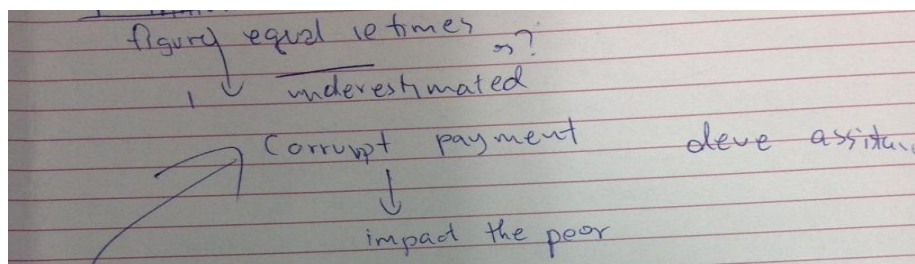 figure equal 10 times
n?
underestimated
Corrupt payment deve assitan
impact the poor